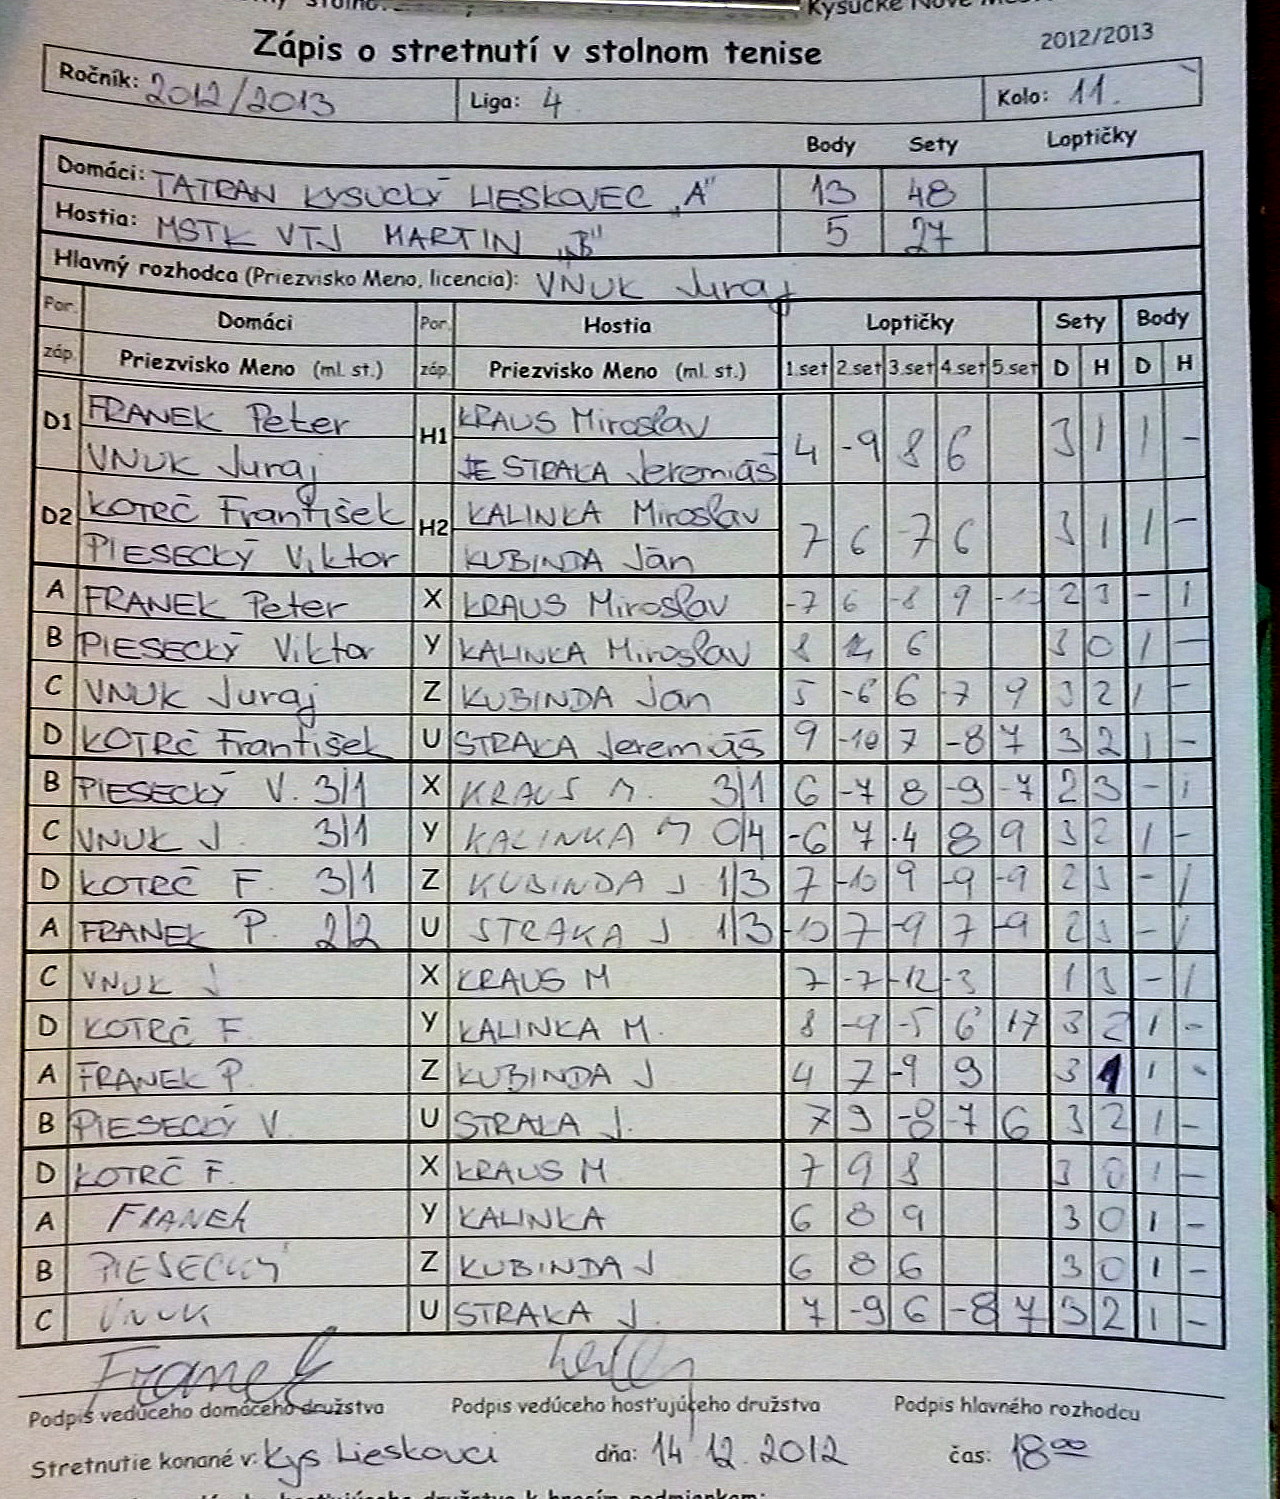 Zápis o stretnutí v stolnom tenise 2012/2013
Ročník: 2012/2013 Liga: 4 Kolo: 11.
Body Sety Loptičky
Domáci: TATRAN KYSUCKÝ LIESKOVEC „A" 13 48
Hostia: MSTK VTJ MARTIN „B" 5 27
Hlavný rozhodca (Priezvisko Meno, licencia): VNUK Juraj
Por. Domáci Por. Hostia Loptičky Sety Body
záp. Priezvisko Meno (ml. st.) záp. Priezvisko Meno (ml. st.) 1.set 2.set 3.set 4.set 5.set D H D H
D1 FRANEK Peter H1 KRAUS Miroslav 4 -9 8 6 3 1 1 -
VNUK Juraj STRAKA Jeremiáš
D2 KOTRČ František H2 KALINKA Miroslav 7 6 -7 6 3 1 1 -
PIESECKÝ Viktor KUBINDA Ján
A FRANEK Peter X KRAUS Miroslav -7 6 -8 9 2 3 - 1
B PIESECKÝ Viktor Y KALINKA Miroslav 8 6 3 0 1 -
C VNUK Juraj Z KUBINDA Ján 5 -6 6 -7 9 3 2 1 -
D KOTRČ František U STRAKA Jeremiáš 9 -10 7 -8 7 3 2 1 -
B PIESECKÝ V. 3/1 X KRAUS M. 3/1 6 -7 8 -9 -7 2 3 - 1
C VNUK J. 3/1 Y KALINKA M 0/4 -6 7 -4 8 9 3 2 1 -
D KOTRČ F. 3/1 Z KUBINDA J 1/3 7 -10 9 -9 -9 2 3 - 1
A FRANEK P. 2/2 U STRAKA J. 1/3 -10 7 -9 7 -9 2 3 - 1
C VNUK J X KRAUS M 7 -7 -12 -3 1 3 - 1
D KOTRČ F. Y KALINKA M. 8 -9 -5 6 17 3 2 1 -
A FRANEK P. Z KUBINDA J 4 7 -9 9 3 1 1 -
B PIESECKÝ V. U STRAKA J. 7 9 -8 -7 6 3 2 1 -
D KOTRČ F. X KRAUS M 7 9 8 3 0 1 -
A FRANEK Y KALINKA 6 8 9 3 0 1 -
B PIESECKÝ Z KUBINDA J 6 8 6 3 0 1 -
C VNUK U STRAKA J. 7 -9 6 -8 7 3 2 1 -
Franek
Podpis vedúceho domáceho družstva Podpis vedúceho hosťujúceho družstva Podpis hlavného rozhodcu
Stretnutie konané v: Kys Lieskovci dňa: 14.12.2012 čas: 18⁰⁰